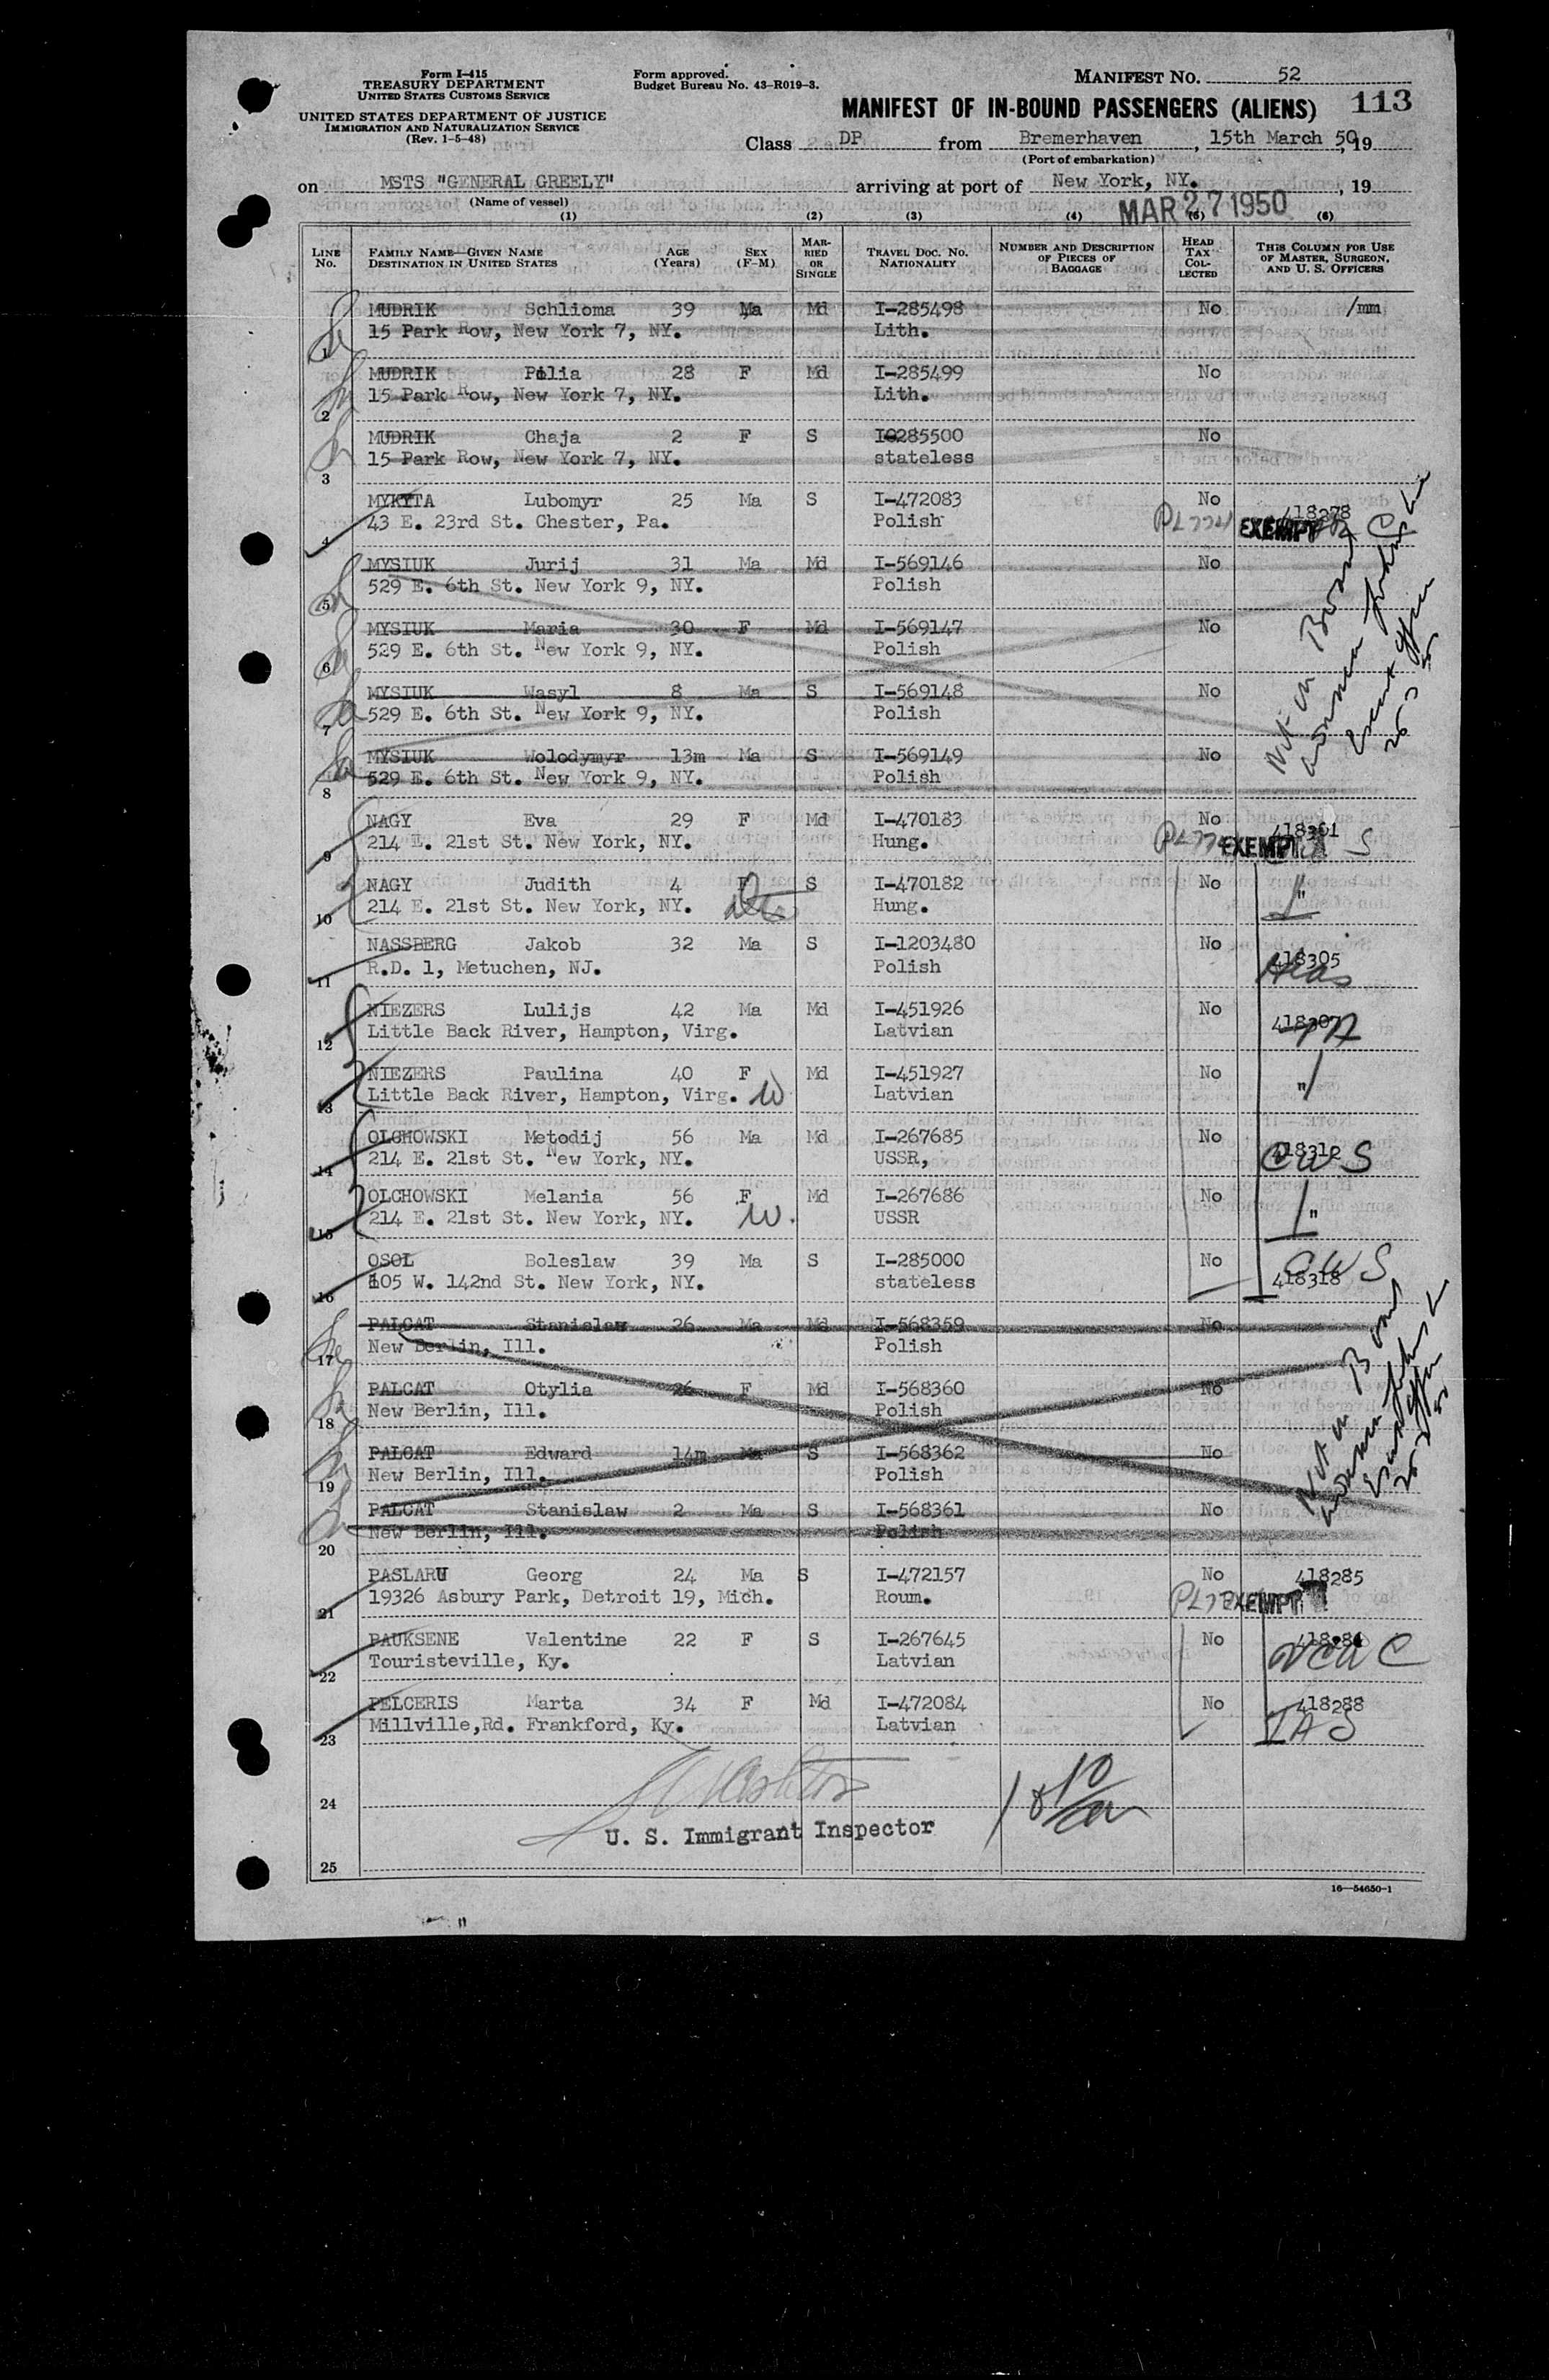 Form I-415
TREASURY DEPARTMENT
UNITED STATES CUSTOMS SERVICE
UNITED STATES DEPARTMENT OF JUSTICE
IMMIGRATION AND NATURALIZATION SERVICE
(Rev. 1-5-48)
Form approved.
Budget Bureau No. 43-R019-3.
MANIFEST NO. 52
MANIFEST OF IN-BOUND PASSENGERS (ALIENS) 113
Class DP from Bremerhaven, 15th March 50, 19
(Port of embarkation)
on MSTS "GENERAL GREELY" arriving at port of New York, NY., 19
(Name of vessel)
MAR 27 1950
(1) (2) (3) (4) (5) (6)
LINE No. FAMILY NAME—GIVEN NAME DESTINATION IN UNITED STATES AGE (Years) SEX (F-M) MARRIED OR SINGLE TRAVEL DOC. NO. NATIONALITY NUMBER AND DESCRIPTION OF PIECES OF BAGGAGE HEAD TAX COLLECTED THIS COLUMN FOR USE OF MASTER, SURGEON, AND U. S. OFFICERS
MUDRIK Schlioma 39 Ma Md I-285498 No /mm
1 15 Park Row, New York 7, NY. Lith.
MUDRIK Polia 28 F Md I-285499 No
2 15 Park Row, New York 7, NY. Lith.
MUDRIK Chaja 2 F S I0285500 No
3 15 Park Row, New York 7, NY. stateless
MYKYTA Lubomyr 25 Ma S I-472083 No 418278
4 43 E. 23rd St. Chester, Pa. Polish EXEMPT
MYSIUK Jurij 31 Ma Md I-569146 No
5 529 E. 6th St. New York 9, NY. Polish
MYSIUK Maria 30 F Md I-569147 No
6 529 E. 6th St. New York 9, NY. Polish
MYSIUK Wasyl 8 Ma S I-569148 No
7 529 E. 6th St. New York 9, NY. Polish
MYSIUK Wolodymyr 13m Ma S I-569149 No
8 529 E. 6th St. New York 9, NY. Polish
Not on Board
NAGY Eva 29 F Md I-470183 No 418301
9 214 E. 21st St. New York, NY. Hung. EXEMPT S
NAGY Judith 4 F S I-470182 No "
10 214 E. 21st St. New York, NY. Hung.
NASSBERG Jakob 32 Ma S I-1203480 No 418305
11 R.D. 1, Metuchen, NJ. Polish Hias
NIEZERS Lulijs 42 Ma Md I-451926 No 418307
12 Little Back River, Hampton, Virg. Latvian
NIEZERS Paulina 40 F Md I-451927 No "
13 Little Back River, Hampton, Virg. W Latvian
OLCHOWSKI Metodij 56 Ma Md I-267685 No 418312
14 214 E. 21st St. New York, NY. USSR, CWS
OLCHOWSKI Melania 56 F Md I-267686 No "
15 214 E. 21st St. New York, NY. W. USSR
OSOL Boleslaw 39 Ma S I-285000 No CWS
16 605 W. 142nd St. New York, NY. stateless 418318
PALCAT Stanislaw 26 Ma Md I-568359 No
17 New Berlin, Ill. Polish
PALCAT Otylia 26 F Md I-568360 No
18 New Berlin, Ill. Polish
PALCAT Edward 14m Ma S I-568362 No
19 New Berlin, Ill. Polish
PALCAT Stanislaw 2 Ma S I-568361 No
20 New Berlin, Ill. Polish
Not on Board
PASLARU Georg 24 Ma S I-472157 No 418285
21 19326 Asbury Park, Detroit 19, Mich. Roum. EXEMPT
PAUKSENE Valentine 22 F S I-267645 No
22 Touristeville, Ky. Latvian NCWC
PELCERIS Marta 34 F Md I-472084 No 418288
23 Millville,Rd. Frankford, Ky. Latvian IAS
24
U. S. Immigrant Inspector
25
16—54650-1